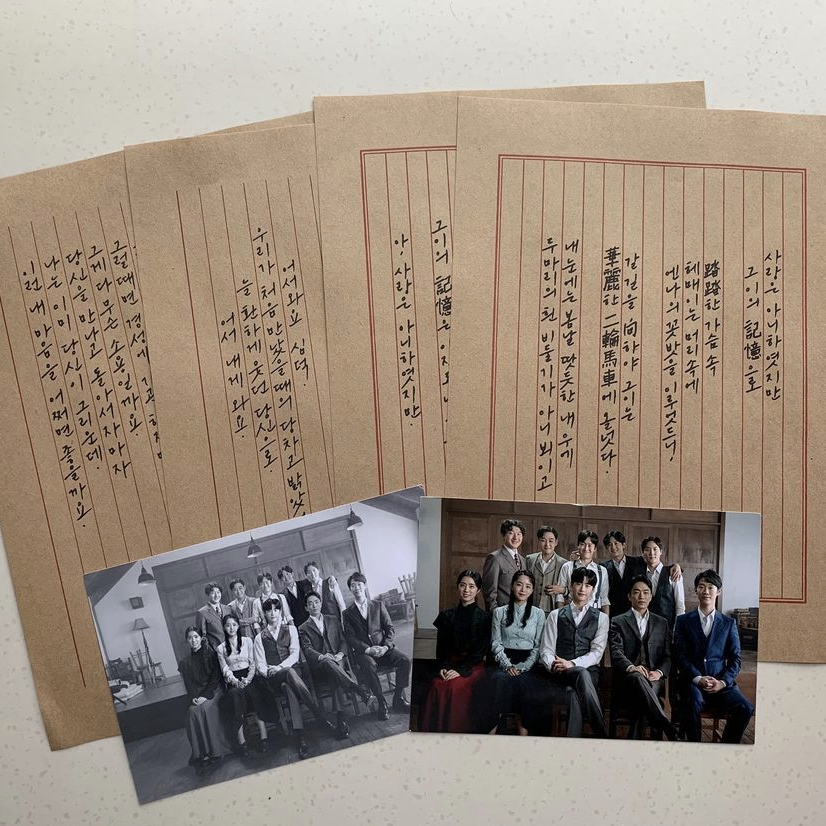 사랑은 아니하엿지만
그이의 記憶으로
踏踏한 가슴 속
헤매이는 머리속에
옌나의 꽃밧을 이루엇드니,
갈 길을 向하야 그이는
華麗한 二輪馬車에 올넛다.
내 눈에는 봄날 땃듯한 내 우에
두 마리의 흰 비들기가 아니 뵈이고
그이의 記憶은
아, 사랑은 아니하엿지만.
어서와요 심덕.
우리가 처음 만났을때의 당차고 밝았
늘 환하게 웃던 당신으로
어서 내게와요.
그럴때면 경성에
그게 다 무슨 소용일까요.
당신을 만나고 돌아서자마자
나는 이미 당신이 그리운데.
이런 내 마음을 어쩌면 좋을까요.